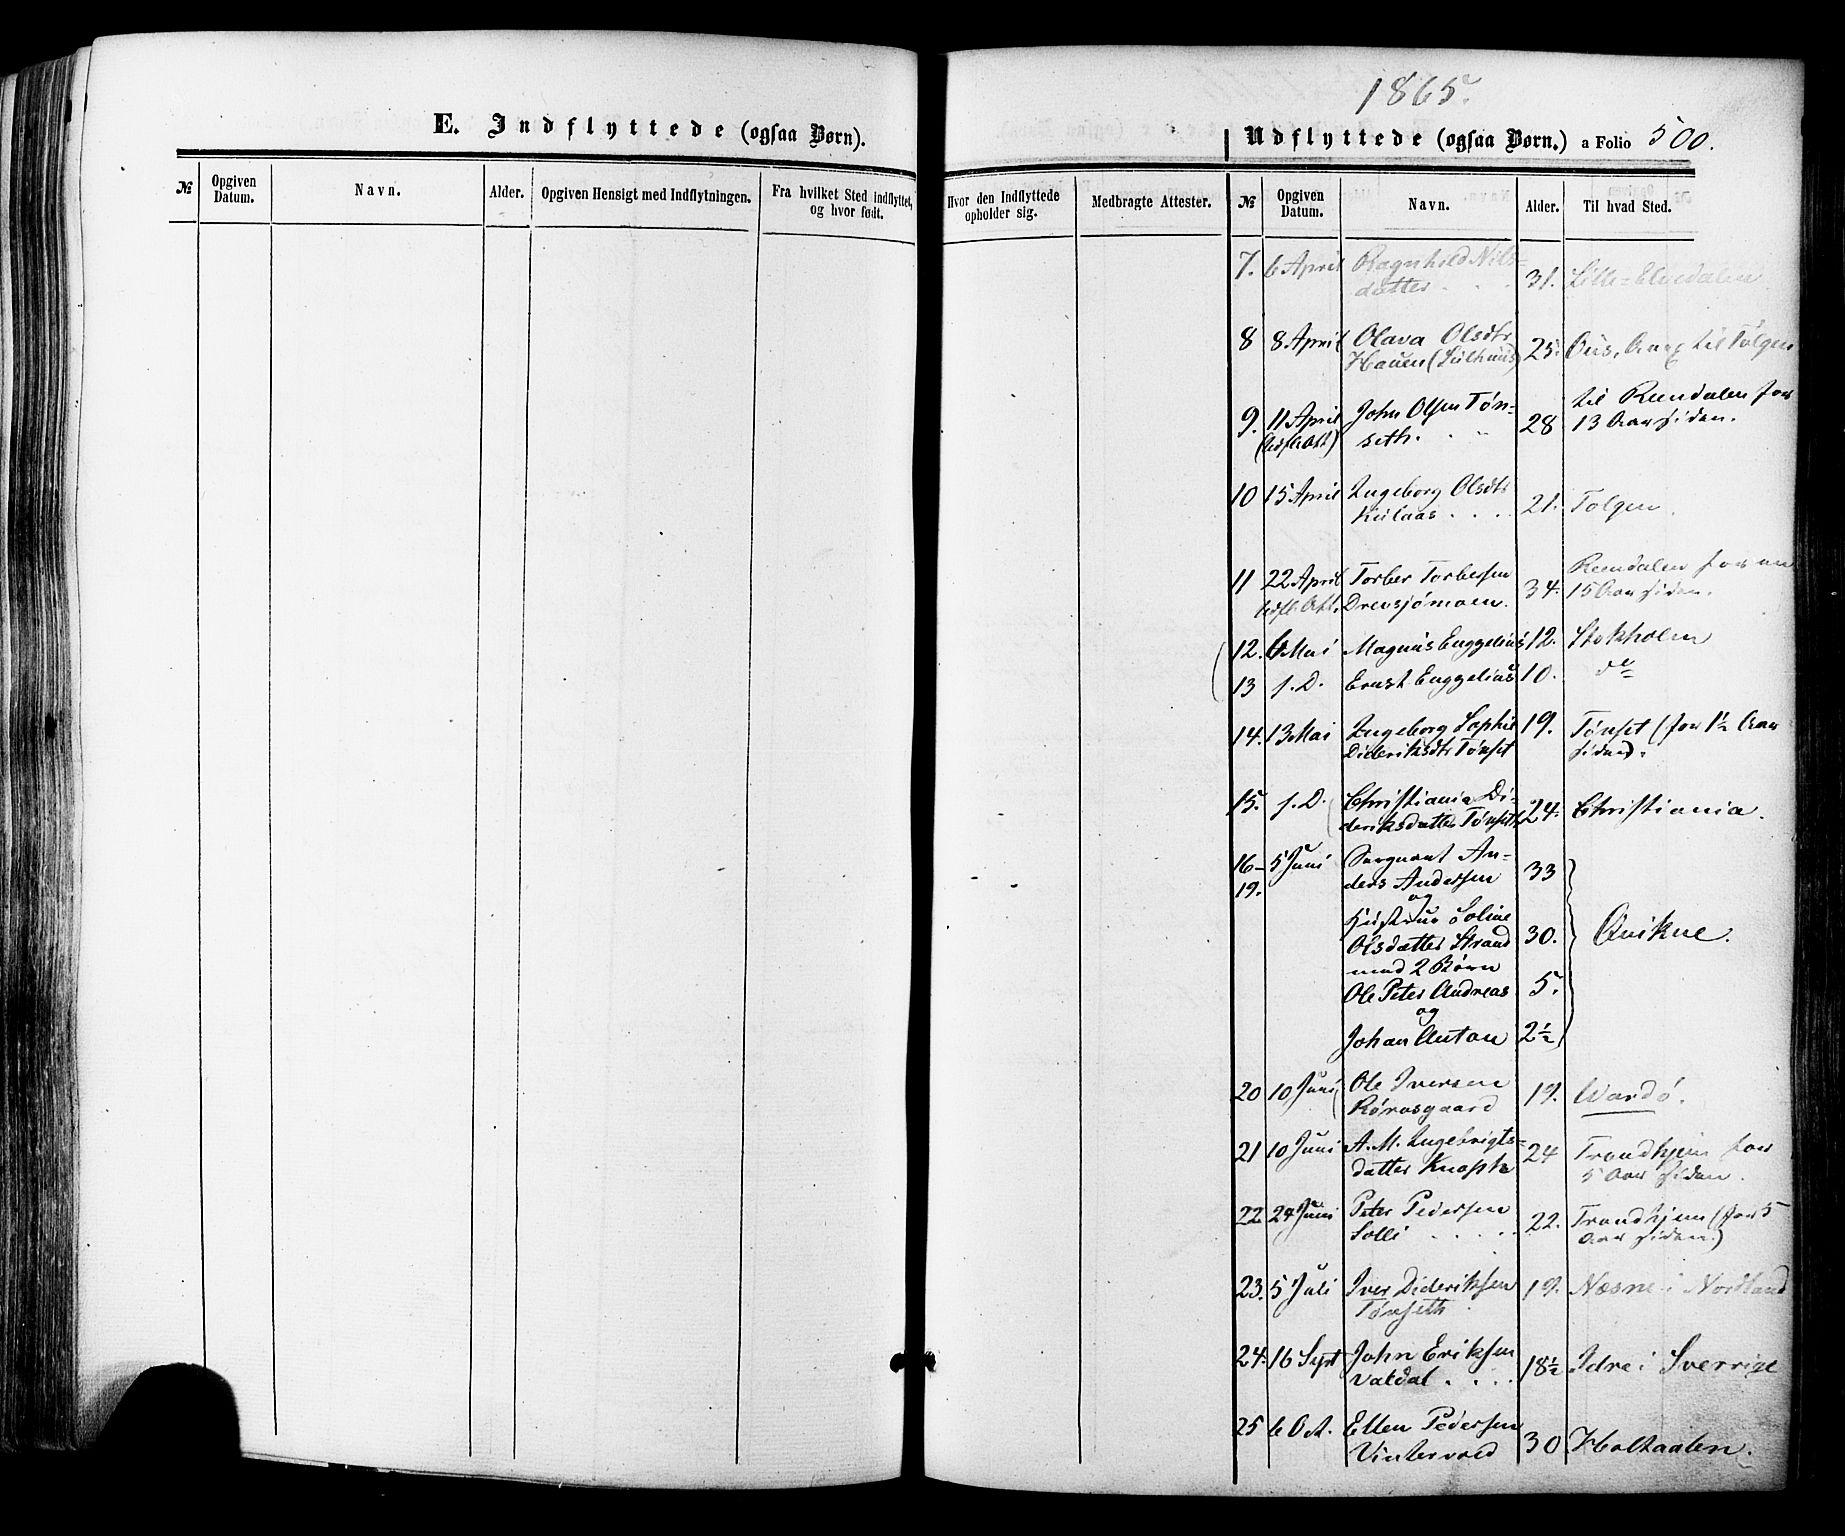 1865.
E. Indflyttede (ogsaa Børn).
Udflyttede (ogsaa Børn.) a Folio 500.
№ Opgiven Datum. Navn. Alder. Opgiven Hensigt med Indflytningen. Fra hvilket Sted indflyttet, og hvor født. Hvor den Indflyttede opholder sig. Medbragte Attester. № Opgiven Datum. Navn. Alder. Til hvad Sted.
7. 6 April Ragnhild Nils-
datter . . . 31. Lille-Elvedalen
8 8 April Olava Olsdtr
Hauen 25. til Tolgen
9. 11 April John Olsen Tøn-
seth. 28 til Rendalen for
13 Aar siden.
10 15 April Ingeborg Olsdtr
21. Tolgen.
11 22 April Torber Torbersen
Drevsjømoen. 34. Rendalen for en
15 Aar siden.
12. 6 Mai Magnus Enggelius 12. Stokholm
13 s. D. Ernst Enggelius 10. do
14. 13 Mai Ingeborg Sophie
Dideriksdtr Tønset 19. Tønset (for 1½ Aar
siden).
15. s. D. Christiania Di-
deriksdatter Tønseth 24. Christiania.
16-
19. 5 Juni Sergeant An-
ders Andersen 33
og
Hustrue Soline
Olsdatter Strand 30.
med 2 Børn
Ole Peter Andreas 5.
og
Johan Anton 2½
Qvikne.
20 10 Juni Ole Iversen
Rørosgaard 19. Wardø.
21 10 Juni A. M. Ingebrigts-
datter 24 Trondhjem for
5 Aar siden.
22 24 Juni Peter Pedersen
Solli . . . . . 22. Trondhjem (for 5
Aar siden.)
23. 5 Juli Iver Dideriksen
Tønseth 19. Næsne i Nordland
24. 16 Sept John Eriksen
Valdal . . . . 18½ Idre i Sverrige
25 6 Oct. Ellen Pedersen
Vintervold 30 Holtaalen.